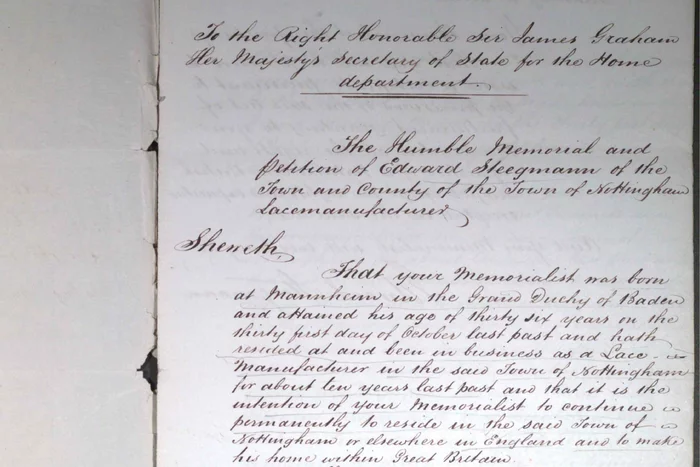 To the Right Honorable Sir James Graham
Her Majesty's Secretary of State for the Home
department.
The Humble Memorial and
Petition of Edward Steegmann of the
Town and County of the Town of Nottingham
Lacemanufacturer
Sheweth,
That your Memorialist was born
at Mannheim in the Grand Duchy of Baden
and attained his age of thirty six years on the
thirty first day of October last past and hath
resided at and been in business as a Lace
Manufacturer in the said Town of Nottingham
for about ten years last past and that it is the
intention of your Memorialist to continue
permanently to reside in the said Town of
Nottingham or elsewhere in England and to make
his home within Great Britain.